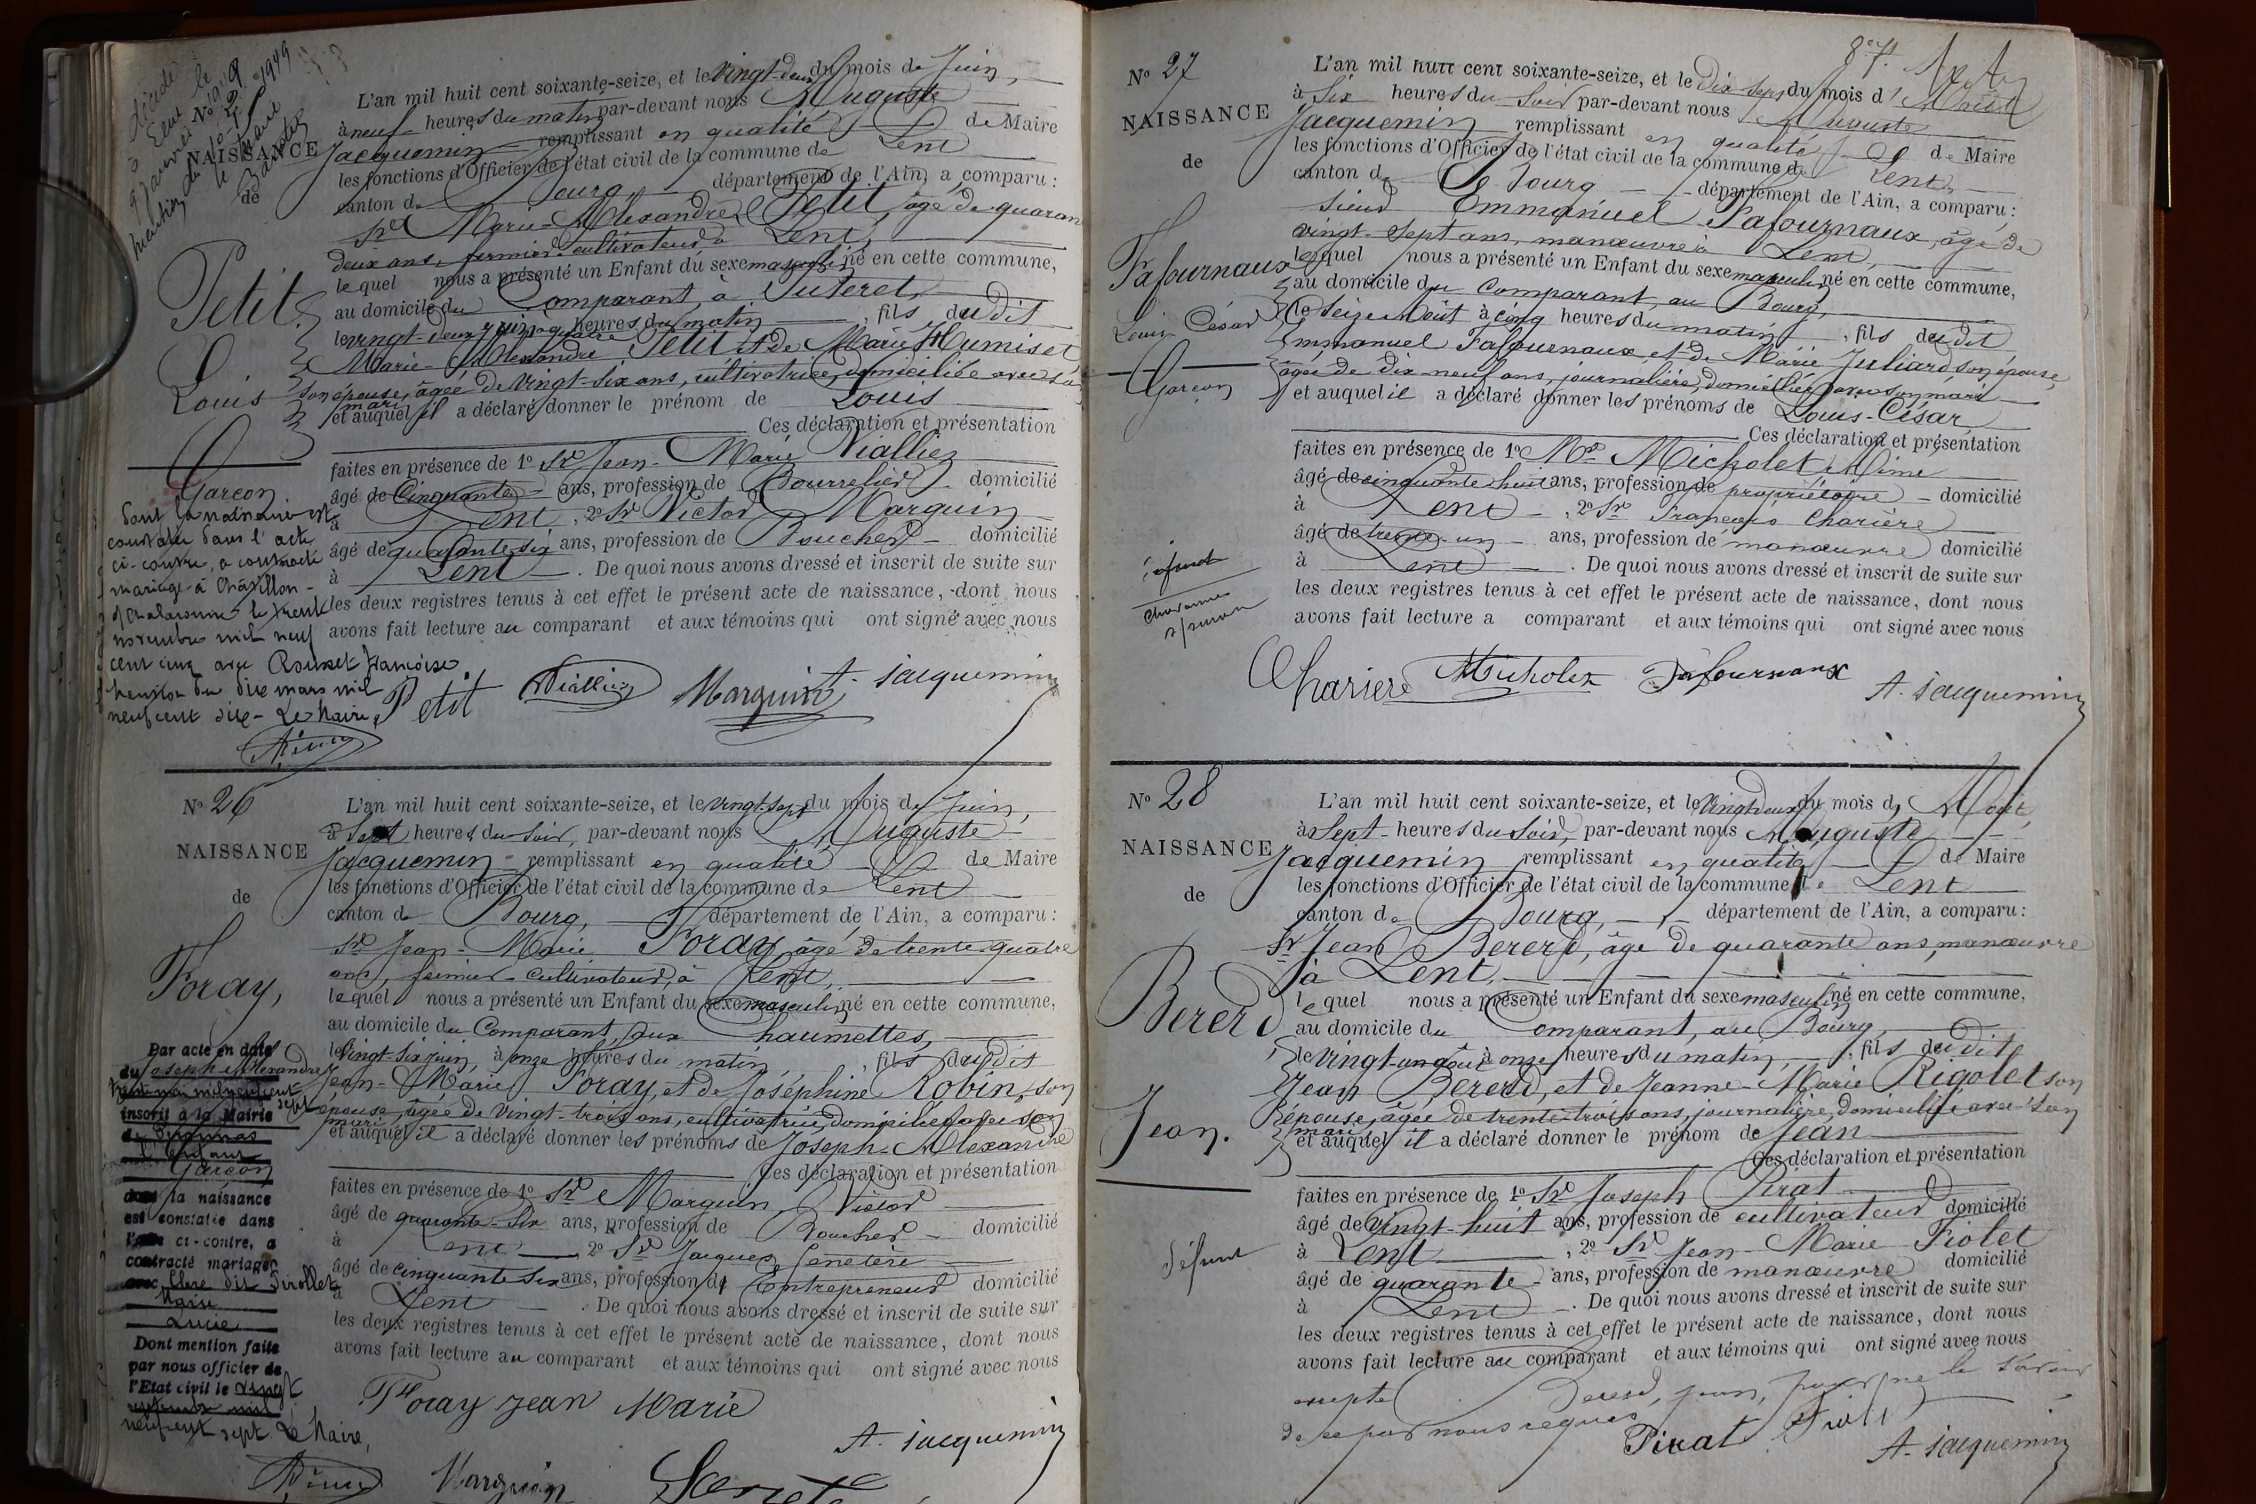 Décédé
à Lent le
9 janvier 1949
Mention du 10-1-
le Maire
No
NAISSANCE
de
Petit
Louis
Garçon.
L'an mil huit cent soixante-seize, et le vingt-deux du mois de Juin,
à neuf heures du matin par-devant nous Auguste
Jacquemin remplissant en qualité de Maire
les fonctions d'Officier de l'état civil de la commune de Lent
canton de Bourg département de l'Ain, a comparu :
Sr Marie-Alexandre Petit, âgé de quarante
deux ans, fermier cultivateur à Lent,
lequel nous a présenté un Enfant du sexe masculin né en cette commune,
au domicile du comparant, à Puteret,
le vingt-deux juin, à quatre heures du matin, fils du dit
Marie-Alexandre Petit et de Marie Humiset
son épouse, âgée de vingt-six ans, cultivatrice, domiciliée avec son
mari
et auquel il a déclaré donner le prénom de Louis
Ces déclaration et présentation
faites en présence de 1o Sr Jean-Marie Vialliez
âgé de Cinquante ans, profession de Bourrelier domicilié
à Lent, 2o Sr Victor Marguin
âgé de quarante six ans, profession de Boucher domicilié
à Lent. De quoi nous avons dressé et inscrit de suite sur
les deux registres tenus à cet effet le présent acte de naissance, dont nous
avons fait lecture au comparant et aux témoins qui ont signé avec nous
Dont la naissance est
constatée dans l'acte
ci-contre, a contracté
mariage à Châtillon-
s/Chalaronne le trente
novembre mil neuf
cent cinq avec Rousset Françoise
Mention du dix mars mil
neuf cent dix - Le Maire,
Petit Vialliez Marguin A. Jacquemin
No 26
NAISSANCE
de
Foray,
Joseph Alexandre
Garçon
L'an mil huit cent soixante-seize, et le vingt-sept du mois de Juin,
à sept heures du soir, par-devant nous Auguste
Jacquemin remplissant en qualité de Maire
les fonctions d'Officier de l'état civil de la commune de Lent
canton de Bourg, département de l'Ain, a comparu :
Sr Jean-Marie Foray, âgé de trente-quatre
ans, fermier-cultivateur, à Lent,
lequel nous a présenté un Enfant du sexe masculin né en cette commune,
au domicile du comparant, aux Chaumettes,
le vingt-six juin, à onze heures du matin, fils du dit
Jean-Marie Foray, et de Joséphine Robin, son
épouse, âgée de vingt-trois ans, cultivatrice, domiciliée avec son
mari
et auquel il a déclaré donner les prénoms de Joseph-Alexandre
Ces déclaration et présentation
faites en présence de 1o Sr Marguin, Victor
âgé de quarante-six ans, profession de Boucher domicilié
à Lent 2o Sr Jacques Genetère
âgé de cinquante six ans, profession de Entrepreneur domicilié
à Lent. De quoi nous avons dressé et inscrit de suite sur
les deux registres tenus à cet effet le présent acte de naissance, dont nous
avons fait lecture au comparant et aux témoins qui ont signé avec nous
Par acte en date
du
trente mai mil neuf cent sept
inscrit à la Mairie
de
l'enfant
dont la naissance
est constatée dans
l'acte ci-contre, a
contracté mariage
avec Clere dit Pirollet
Marie
Lucie
Dont mention faite
par nous officier de
l'Etat civil le vingt
septembre mil
neuf cent sept. Le Maire,
Foray Jean Marie
A. Jacquemin
Marguin
87.
No 27
NAISSANCE
de
Fafournaux
Louis César
Garçon
L'an mil huit cent soixante-seize, et le dix-sept du mois d'Août
à six heures du soir par-devant nous Auguste
Jacquemin remplissant en qualité de Maire
les fonctions d'Officier de l'état civil de la commune de Lent
canton de Bourg département de l'Ain, a comparu :
sieur Emmanuel Fafournaux, âgé de
vingt-sept ans, manœuvre à Lent,
lequel nous a présenté un Enfant du sexe masculin né en cette commune,
au domicile du comparant, au Bourg,
le seize Août à cinq heures du matin, fils du dit
Emmanuel Fafournaux et de Marie Juliard son épouse,
âgée de dix-neuf ans, journalière, domiciliée avec son mari
et auquel il a déclaré donner les prénoms de Louis-César
Ces déclaration et présentation
faites en présence de 1o Mr Micholet Aimé
âgé de cinquante-huit ans, profession de propriétaire domicilié
à Lent, 2o Sr François Charière
âgé de trente-un ans, profession de manœuvre domicilié
à Lent. De quoi nous avons dressé et inscrit de suite sur
les deux registres tenus à cet effet le présent acte de naissance, dont nous
avons fait lecture a comparant et aux témoins qui ont signé avec nous
défunt
Charière Micholet Fafournaux A. Jacquemin
No 28
NAISSANCE
de
Bererd
Jean.
défunt
L'an mil huit cent soixante-seize, et le vingt-deux du mois d'Août,
à sept heures du soir, par-devant nous Auguste
Jacquemin remplissant en qualité de Maire
les fonctions d'Officier de l'état civil de la commune de Lent
canton de Bourg, département de l'Ain, a comparu :
Sr Jean Bererd, âgé de quarante ans, manœuvre
à Lent,
lequel nous a présenté un Enfant du sexe masculin né en cette commune,
au domicile du comparant, au Bourg,
le vingt-un août à onze heures du matin, fils du dit
Jean Bererd, et de Jeanne-Marie Rigolet son
épouse, âgée de trente-trois ans, journalière, domiciliée avec son
mari
et auquel il a déclaré donner le prénom de Jean
Ces déclaration et présentation
faites en présence de 1o Sr Joseph Pirat
âgé de vingt-huit ans, profession de cultivateur domicilié
à Lent, 2o Sr Jean-Marie Fiolet
âgé de quarante ans, profession de manœuvre domicilié
à Lent. De quoi nous avons dressé et inscrit de suite sur
les deux registres tenus à cet effet le présent acte de naissance, dont nous
avons fait lecture au comparant et aux témoins qui ont signé avec nous
excepté Bererd, Jean, pour ne le savoir
de ce par nous requis
Pirat A. Jacquemin